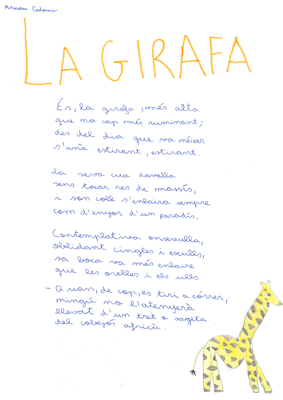 Arnau
LA GIRAFA
És, la girafa, més alta
que no cap més ruminant;
des del dia que va néixer
s'anà estirant, estirant.
La seva cua davalla
sens tocar res de massís,
i son coll s'enlaira sempre
com d'enyor d'un paradís.
Contemplativa
oblidant cingles i esculls,
sa boca va més enlaire
que les orelles i els ulls.
- Quan, de cop, es tiri a córrer,
ningú no l'atenyerà
llevat d'un tret o sageta
del cobejós africà.